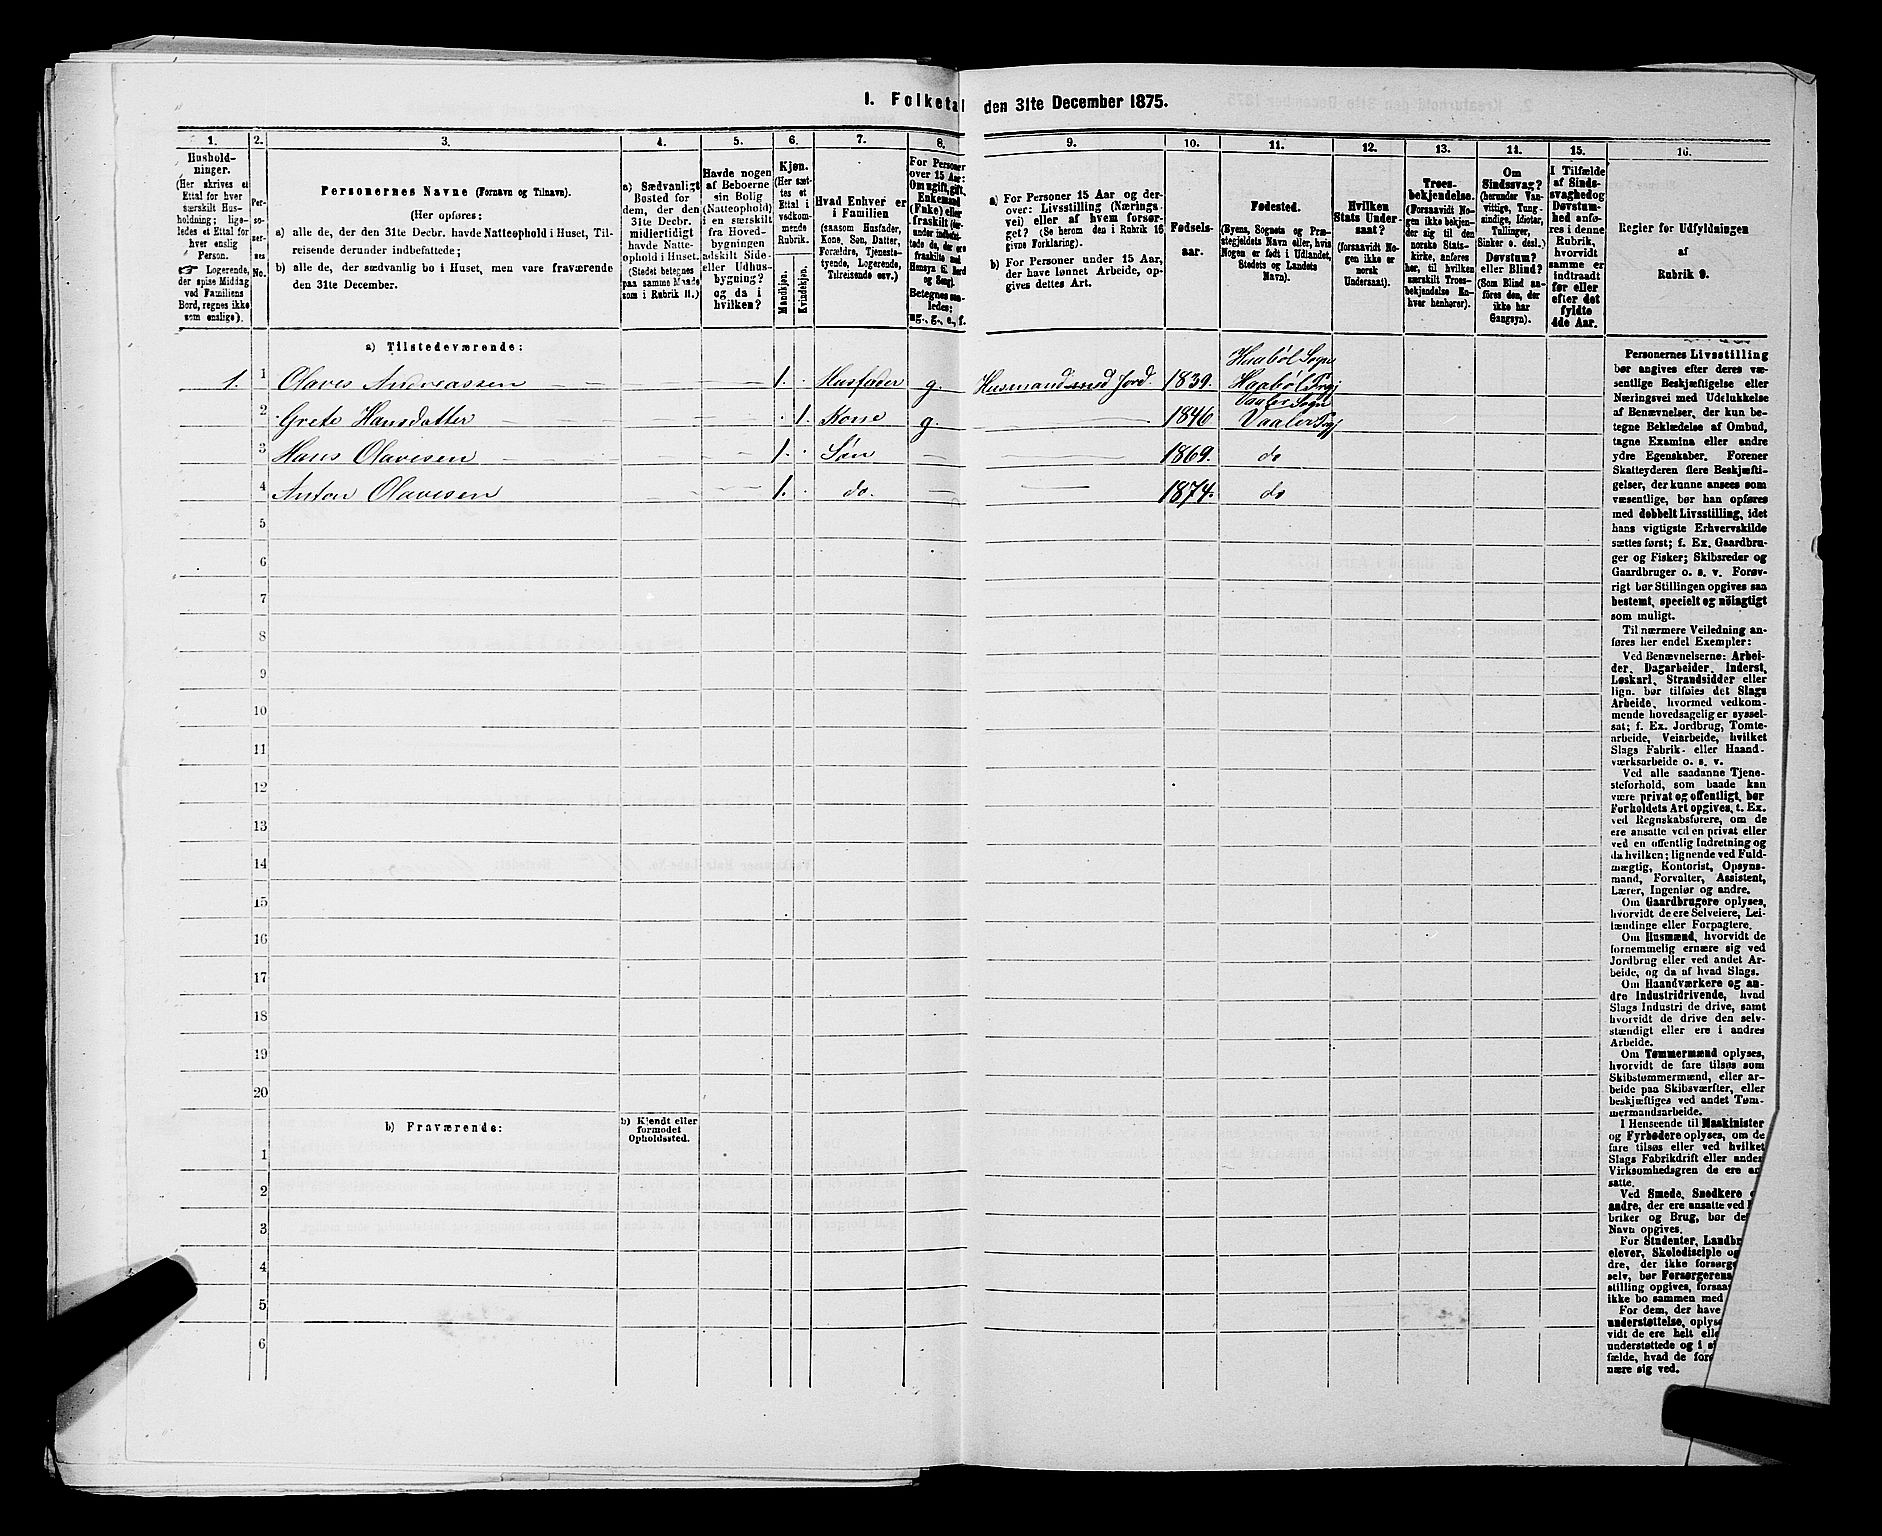 1. Folketal den 31te December 1875.
1. 2. 3. 4. 5. 6. 7. 8. 9. 10. 11. 12. 13. 14. 15. 16.
Hushold-
ninger.
(Her skrives et
Ettal for hver
særskilt Hus-
holdning; lige-
ledes et Ettal for
hver enslig
Person.
☞ Logerende,
der spise Middag
ved Familiens
Bord, regnes ikke
som enslige).
Per-
so-
ner-
nes
No.
Personernes Navne (Fornavn og Tilnavn).
(Her opføres:
a) alle de, der den 31te Decbr. havde Natteophold i Huset, Til-
reisende derunder indbefattede;
b) alle de, der sædvanlig bo i Huset, men vare fraværende
den 31te December.
a) Sædvanligt
Bosted for
dem, der den
31te Decbr.
midlertidigt
havde Natte-
ophold i Huset.
(Stedet betegnes
paa samme Maade
som i Rubrik 11.)
Havde nogen
af Beboerne
sin Bolig
(Natteophold)
i en særskilt
fra Hoved-
bygningen
adskilt Side-
eller Udhus-
bygning?
og da i
hvilken?
Kjøn.
(Her sæt-
tes et
Ettal i
vedkom-
mende
Rubrik.
Mandkjøn.
Kvindekjøn.
Hvad Enhver er
i Familien
(saasom Husfader,
Kone, Søn, Datter,
Forældre, Tjeneste-
tyende, Logerende,
Tilreisende osv.)
For Personer
over 15 Aar:
Om ugift, gift,
Enkemand
(Enke) eller
fraskilt (der-
under indbefat-
tede de, der ere
fraskilte med
Hensyn til Bord
og Seng).
Betegnes saa-
ledes:
ug., g., e., f.
a) For Personer 15 Aar og der-
over: Livsstilling (Nærings-
vei) eller af hvem forsør-
get? (Se herom den i Rubrik 16
givne Forklaring).
b) For Personer under 15 Aar,
der have lønnet Arbeide, op-
gives dettes Art.
Fødsels-
aar.
Fødested.
(Byens, Sognets og Præ-
stegjeldets Navn eller, hvis
Nogen er født i Udlandet,
Stedets og Landets
Navn).
Hvilken
Stats Under-
saat?
(forsaavidt No-
gen ikke er
norsk
Undersaat).
Troes-
bekjendelse.
(Forsaavidt No-
gen ikke bekjen-
der sig til den
norske Stats-
kirke, anføres
her, til hvilken
særskilt Troes-
bekjendelse En-
hver henhører).
Om
Sindssvag?
(herunder Van-
vittige, Tung-
sindige, Idioter,
Tullinger,
Sinker o. desl.)
Døvstum?
eller Blind?
(Som Blind an-
føres den, der
ikke har
Gangsyn).
I Tilfælde
af Sinds-
svaghed og
Døvstum-
hed anfø-
res i denne
Rubrik,
hvorvidt
samme er
indtraadt
før eller
efter det
fyldte
4de Aar.
Regler for Udfyldningen
af
Rubrik 9.
a) Tilstedeværende:
1. 1 Olaves Andreassen 1. Husfader g. Husmand med Jord. 1839. Haabøl Sogn Haabøl Prgj
2 Grete Hansdatter 1. Kone g. 1846 Vaaler Sogn Vaaler Prgj
3 Hans Olavesen 1. Søn 1869. do
4 Anton Olavesen 1. do. 1874. do
5
6
7
8
9
10
11
12
13
14
15
16
17
18
19
20
b) Fraværende:
b) Kjendt eller
formodet
Opholdssted.
1
2
3
4
5
6
Personernes Livsstilling
bør angives efter deres væ-
sentlige Beskjæftigelse eller
Næringsvei med Udelukkelse
af Benævnelser, der kun be-
tegne Beklædelse af Ombud,
tagne Examina eller andre
ydre Egenskaber. Forener
Skatteyderen flere Beskjæfti-
gelser, der kunne ansees som
væsentlige, bør han opføres
med dobbelt Livsstilling, idet
hans vigtigste Erhvervskilde
sættes først; f. Ex. Gaardbru-
ger og Fisker; Skibsreder og
Gaardbruger o. s. v. Forøv-
rigt bør Stillingen opgives saa
bestemt, specielt og nöiagtigt
som muligt.
Til nærmere Veiledning an-
føres her endel Exempler:
Ved Benævnelserne: Arbei-
der, Dagarbeider, Inderst,
Løskarl, Strandsidder eller
lign. bør tilføies det Slags
Arbeide, hvormed vedkom-
mende hovedsagelig er syssel-
sat; f. Ex. Jordbrug, Tomte-
arbeide, Veiarbeide, hvilket
Slags Fabrik- eller Haand-
værksarbeide o. s. v.
Ved alle saadanne Tjene-
steforhold, som baade kan
være privat og offentligt, bør
Forholdets Art opgives, t. Ex.
ved Regnskabsførere, om de
ere ansatte ved en privat eller
ved en offentlig Indretning og
da hvilken; lignende ved Fuld-
mægtig, Kontorist, Opsyns-
mand, Forvalter, Assistent,
Lærer, Ingeniør og andre.
Om Gaardbrugere oplyses,
hvorvidt de ere Selveiere, Lei-
lændinge eller Forpagtere.
Om Husmænd, hvorvidt de
fornemmelig ernære sig ved
Jordbrug eller ved andet Ar-
beide, og da af hvad Slags.
Om Haandværkere og an-
dre Industridrivende, hvad
Slags Industri de drive, samt
hvorvidt de drive den selv-
stændigt eller ere i andres
Arbeide.
Om Tømmermænd oplyses,
hvorvidt de fare tilsøs som
Skibstømmermænd, eller ar-
beide paa Skibsværfter, eller
beskjæftiges ved andet Tøm-
mermandsarbeide.
I Henseende til Maskinister
og Fyrbødere oplyses, om de
fare tilsøs eller ved hvilket
Slags Fabrikdrift eller anden
Virksomhedsgren de ere an-
satte.
Ved Smede, Snedkere
andre, der ere ansatte ved
briker og Brug, bør
Navn opgives.
For Studenter,
elever, Skoledisciple
dre, der ikke
selv, bør Forsørgerens
stilling opgives,
ikke bo sammen med
For dem, der have
understøttelse,
vidt de ere helt
understøttede og i
fælde, hvad de
nære sig ved.